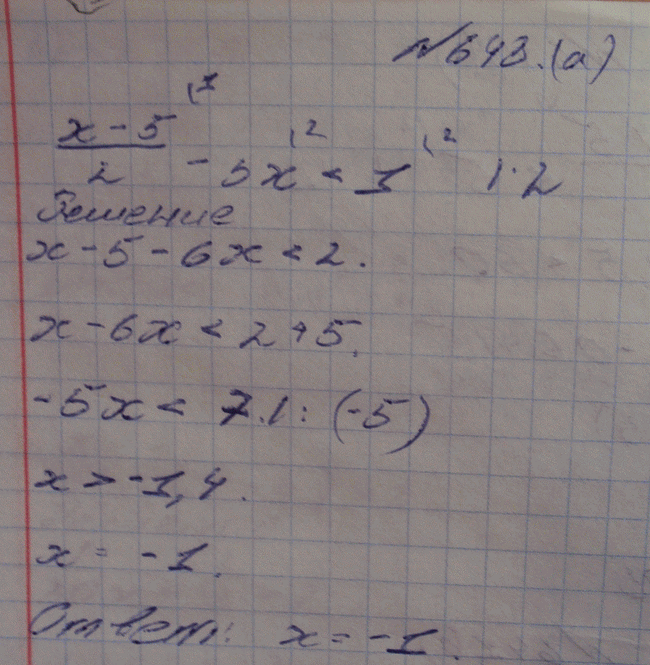 №643.(а)
(x-5)/2 ⁽¹ - 3x ⁽² < 1 ⁽² |·2
Решение
x-5-6x<2.
x-6x<2+5.
-5x<7.|:(-5)
x>-1,4.
x=-1.
Ответ: x=-1.